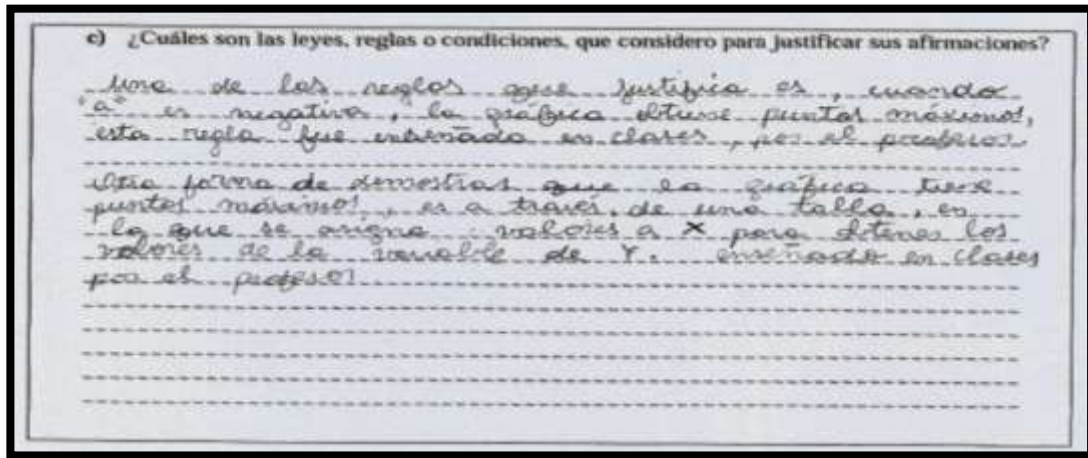 c) ¿Cuáles son las leyes, reglas o condiciones, que considero para justificar sus afirmaciones?
Una de las reglas que justifica es, cuando
"a" es negativa, la gráfica obtiene puntos máximos,
esta regla fue enseñada en clases, por el profesor
Otra forma de demostrar que la gráfica tiene
puntos máximos, es a través de una tabla, en
la que se asigna valores a X para obtener los
valores de la variable de Y. enseñado en clases
por el profesor